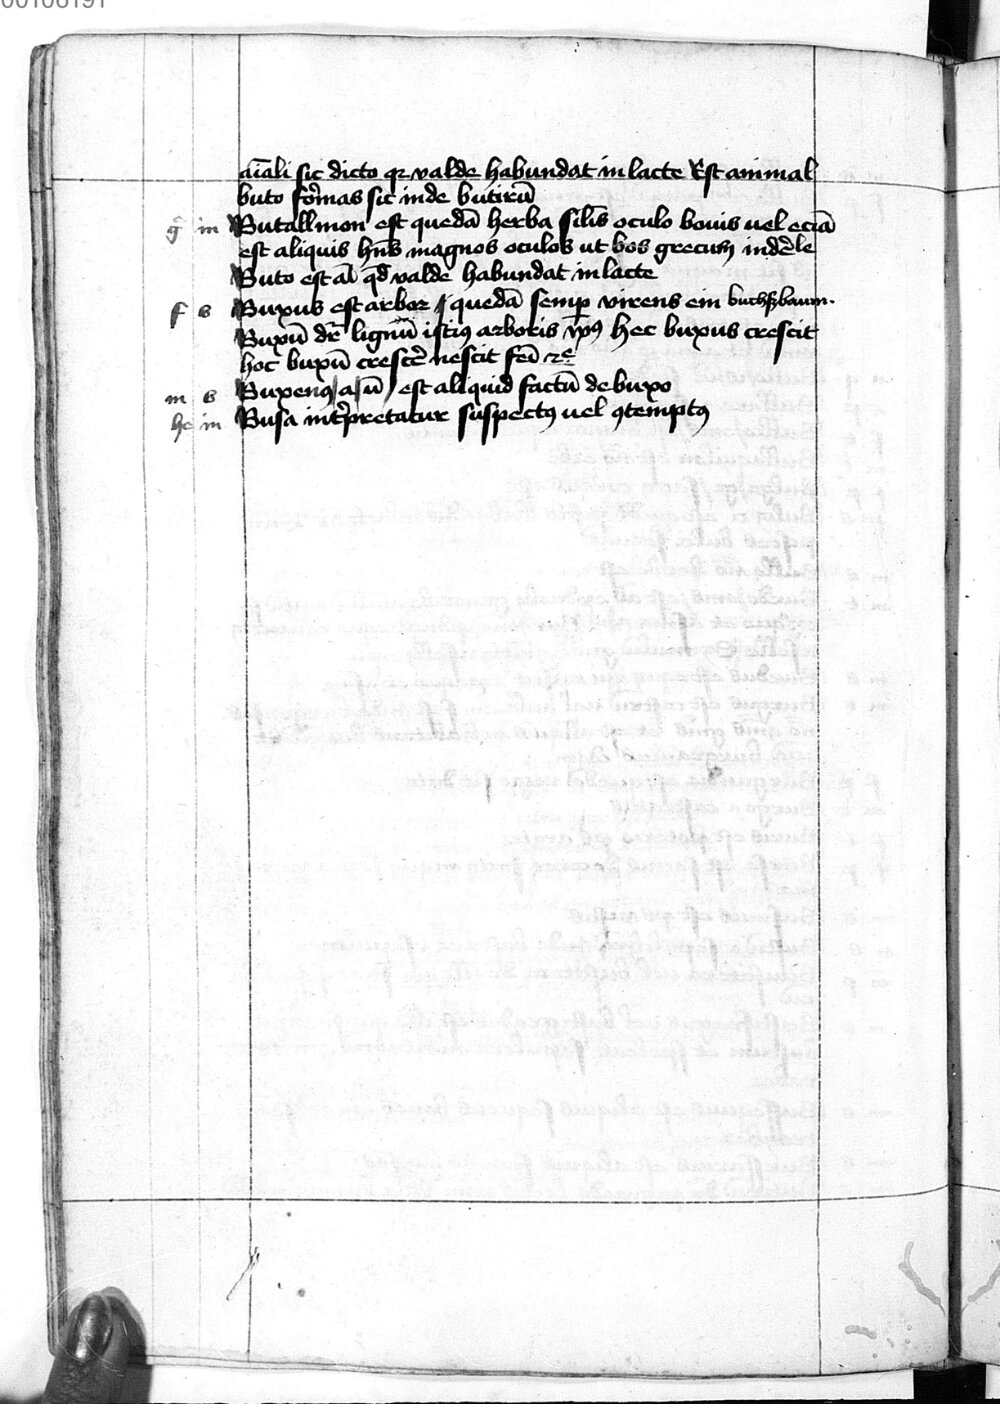 00106191
aīali sic dicto qz valde habundat in lacte Est animal
buto formas sic inde butirū
g in Butallmon est quedā herba silīs oculo bouis uel eciā
est aliquis hn̄s magnos oculos ut bos grecum inde le
Buto est aīal qd valde habundat in lacte
f s Buxus est arbor quedā semp virens ein buchßbaum.
Buxū dr̄ lignū istiꝯ arboris vꝰ hec buxus crescit
hoc buxū crescere nescit
m s Buxenꝯ a ū est aliquid factū de buxo
in Busa interpretatur suspectꝯ uel ꝯtemptꝯ